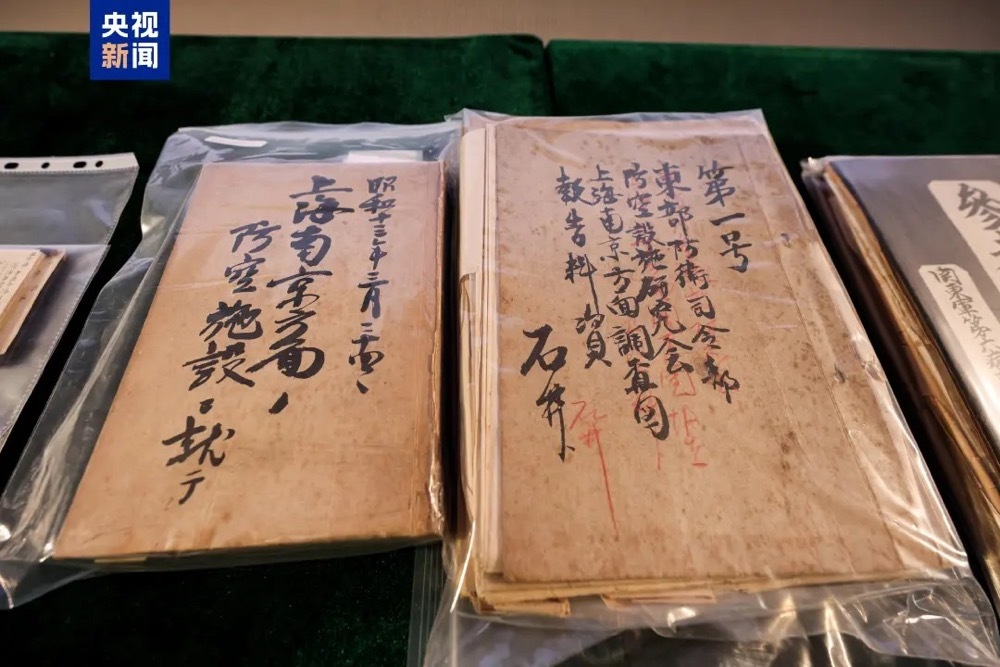 央视
新闻
昭和十三年三月二十四
上海南京方面ノ
防空施設ニ
就テ
第一号
東部防衛司令部
防空設施研究会
上海南京方面調査団
報告
石井
石井
関東軍第